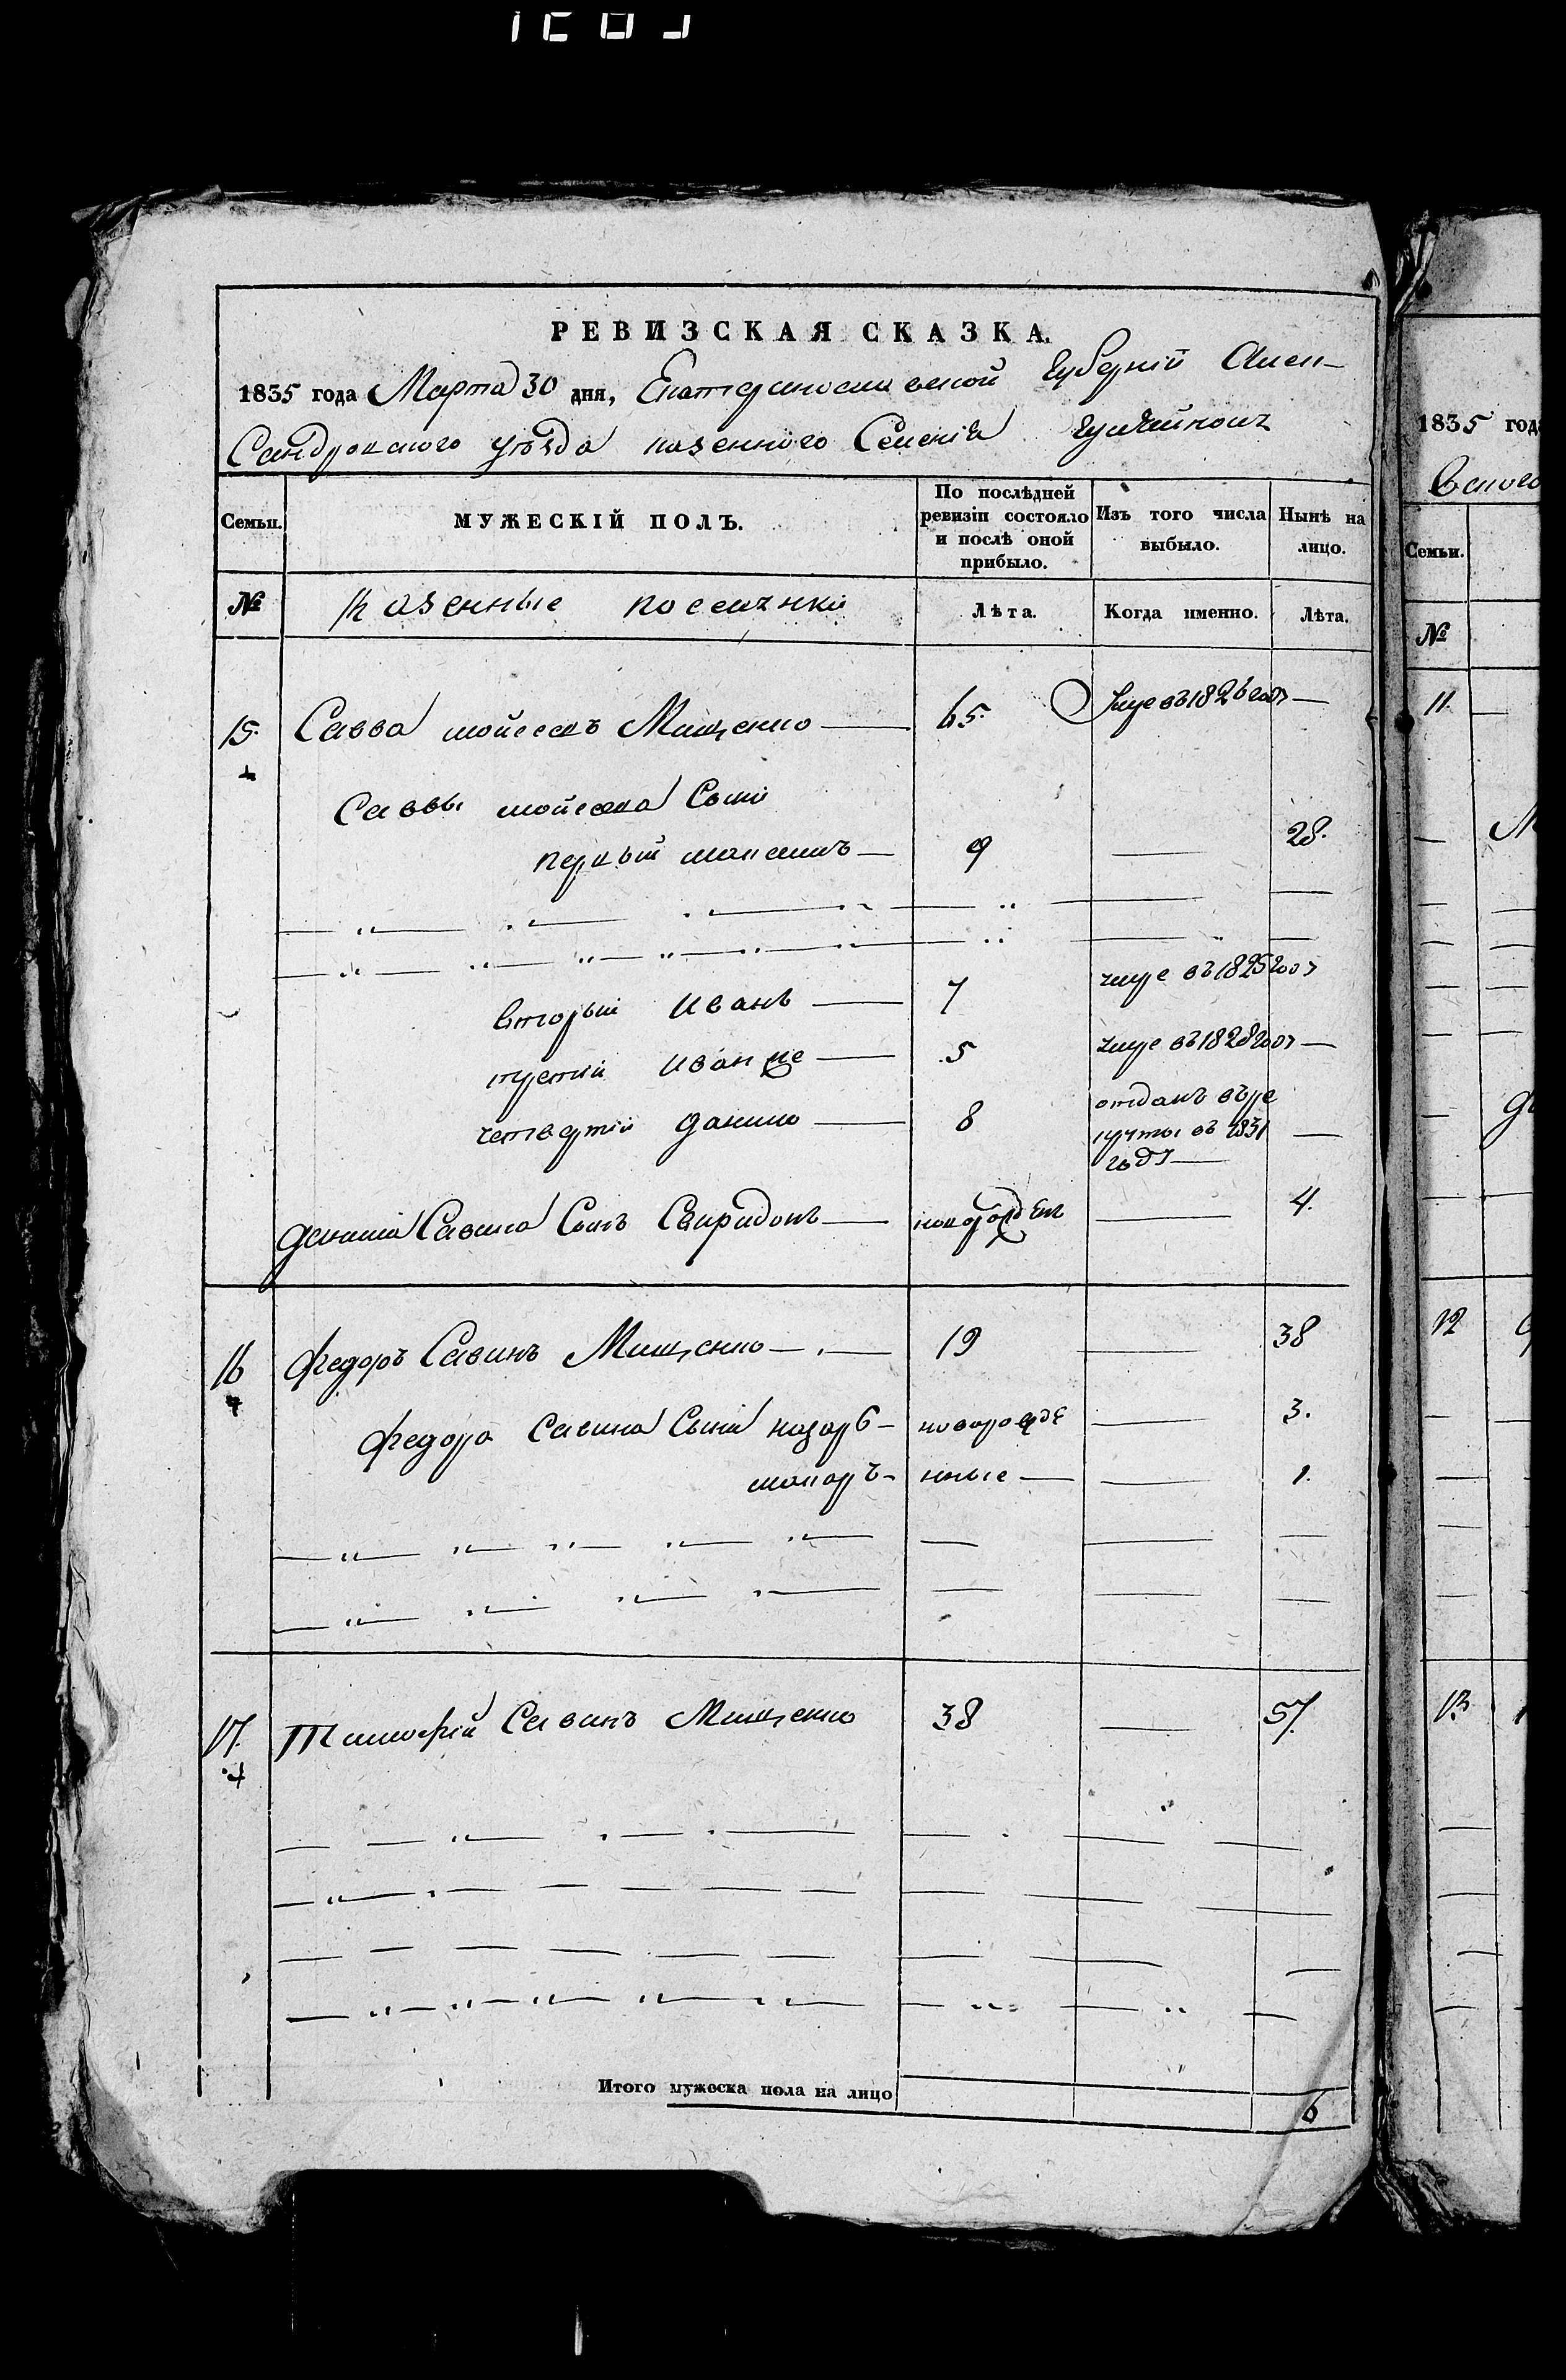 РЕВИЗСКАЯ СКАЗКА.
1835 года Марта 30 дня, Екатеринославской губерній Алек-
Сандровского уѣзда казенного Селенія Гуляйполь
Семьи. МУЖЕСКІЙ ПОЛЪ. По послѣдней ревизіи состояло и послѣ оной прибыло. Изъ того числа выбыло. Нынѣ на лицо.
№ Казенные поселянки Лѣта. Когда именно. Лѣта.
15. Савва мойсеевъ Мищенко — 65. Умре въ 1826 году —
Саввы мойсеева Сыни
первый максимъ — 9 — 28.
вторый Иванъ — 7 умре въ 1825 году
третій Иван же — 5 умре въ 1828 году —
четвертій данило — 8 отданъ въ ре
круты въ 1831 —
году —
данила Савина Сынъ Свиридонъ — новорожден — 4.
16 Федоръ Савинъ Мищенко — 19 — 38
Федора Савина Сыни назаръ — новорожде — 3.
макаръ — нные — — 1.
17. Тимофей Савинъ Мищенко 38 — 57.
Итого мужеска пола на лицо 6
1835 год
Семьи.
№
11.
12
13.